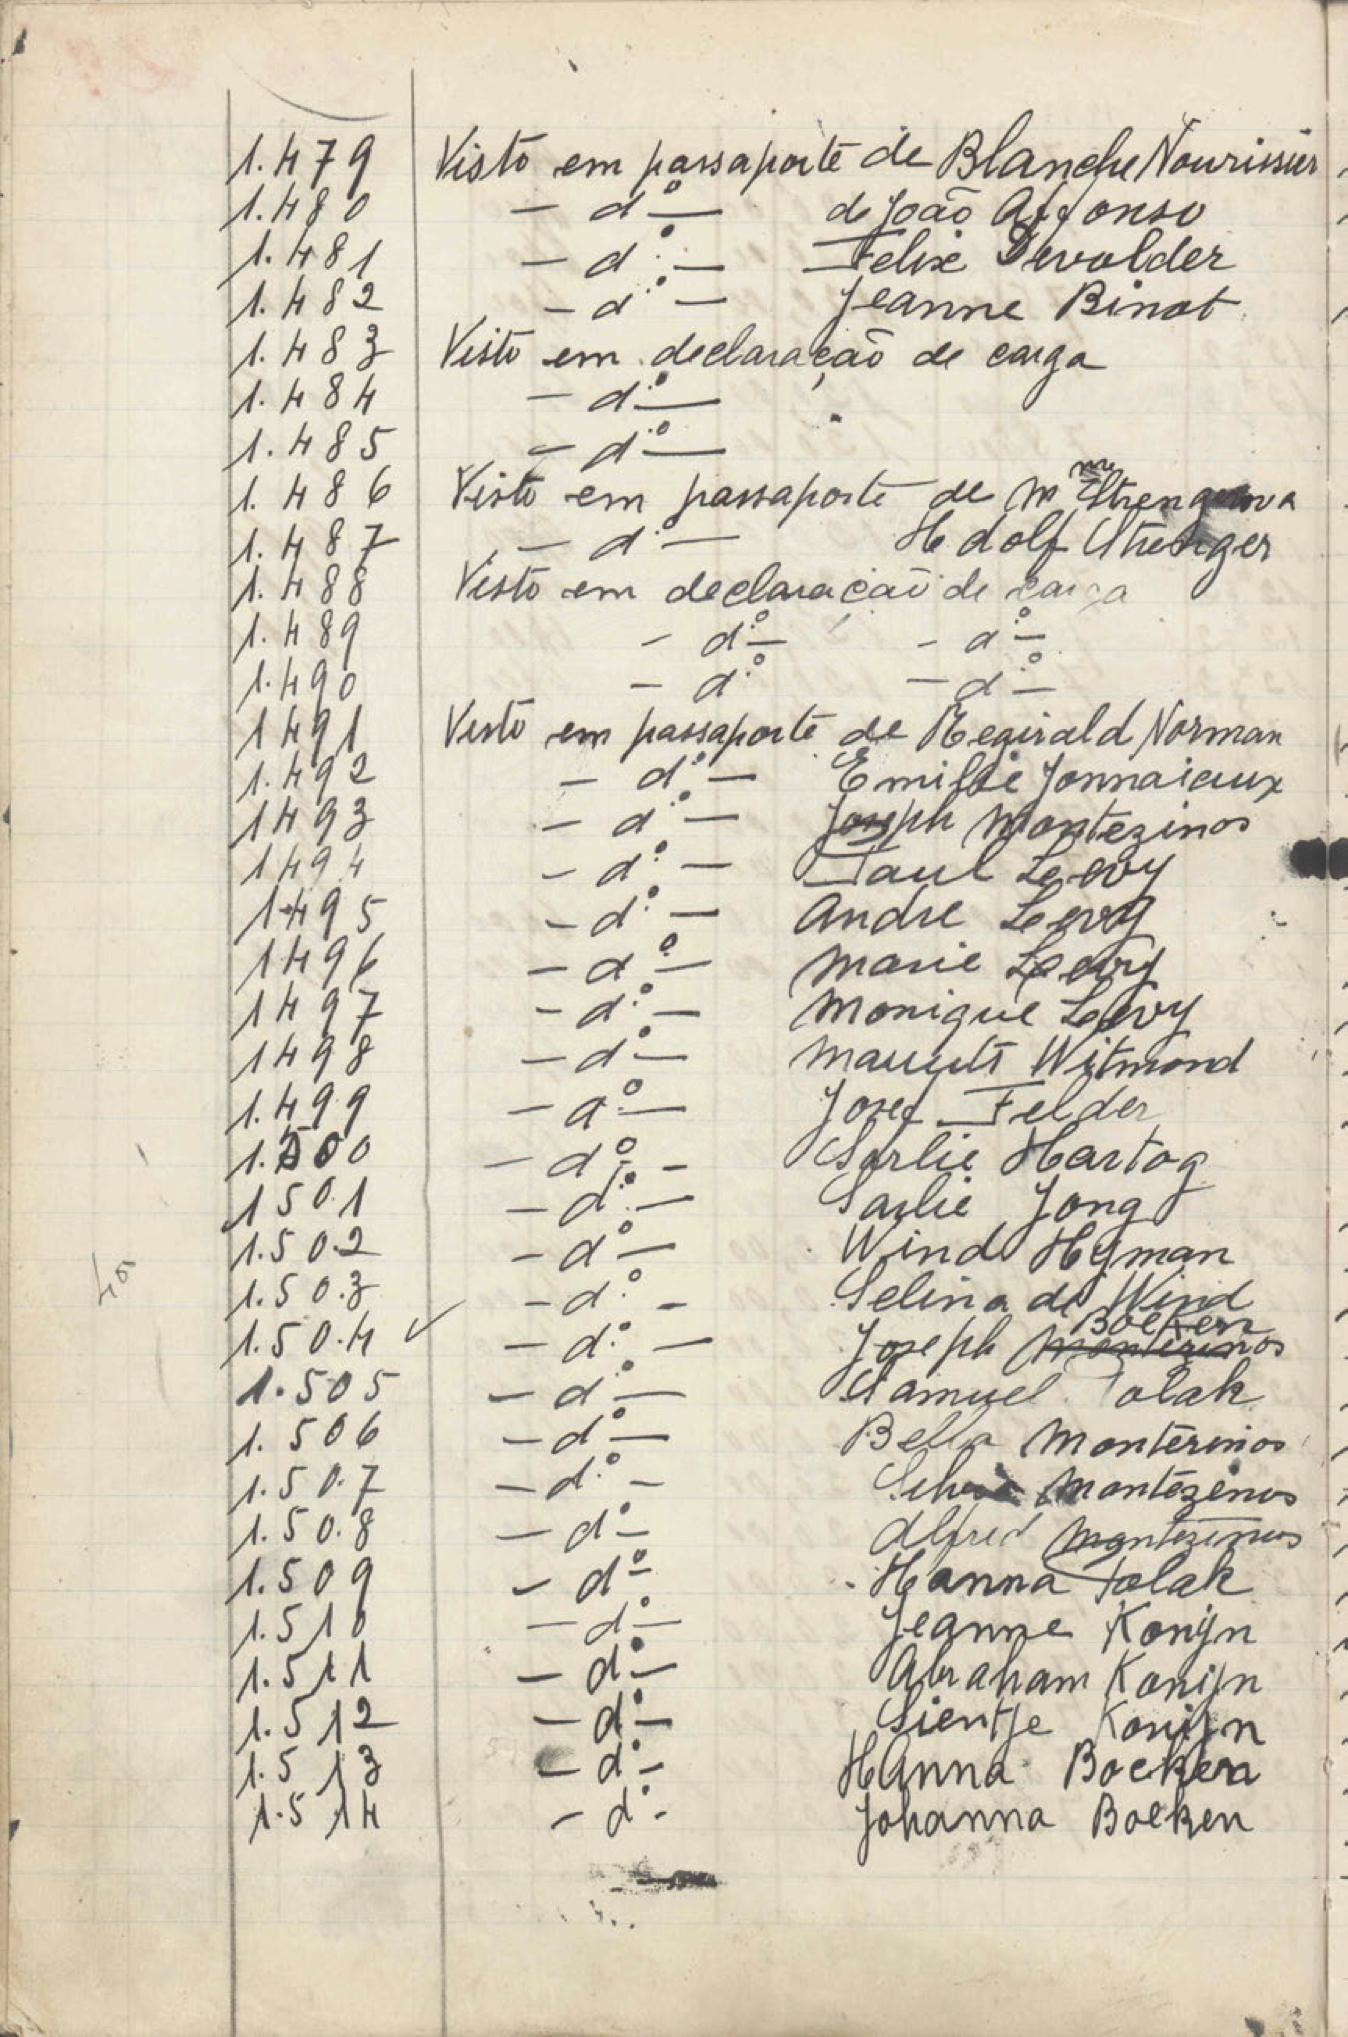 1.479 Visto em passaporte de Blanche Nourissier
1.480 - dº - de João Affonso
1.481 - dº - Felix Devolder
1.482 - dº - Jeanne Binot
1.483 Visto em declaração de carga
1.484 - dº -
1.485 - dº -
1.486 Visto em passaporte de Mme
1.487 - dº - Adolf Strenger
1.488 Visto em declaração de carga
1.489 - dº - - dº -
1.490 - dº - dº -
1491 Visto em passaporte de Reginald Norman
1.492 - dº - Emilie Jonnaiaux
1493 - dº - Joseph Montezinos
1494 - dº - Paul Levy
1495 - dº - André Levy
1496 - dº - Marie Levy
1497 - dº - Monique Levy
1498 - dº - Witmond
1.499 - dº - Josef Felder
1.500 - dº - Sarlie Hartog
1501 - dº - Sarlie Jong
1.502 - dº - Wind Hyman
1.503 - dº - Selina de Wind
Boeken
1.504 ✓ - dº - Joseph Montezinos
1.505 - dº - Samuel Polak
1.506 - dº - Bella Montezinos
1.507 - dº - Montezinos
1.508 - dº - Alfred Montezinos
1.509 - dº - Hanna Polak
1.510 - dº - Jeanne Konijn
1.511 - dº - Abraham Konijn
1.512 - dº - Sientje Konijn
1.513 - dº - Hanna Boeken
1.514 - dº - Johanna Boeken